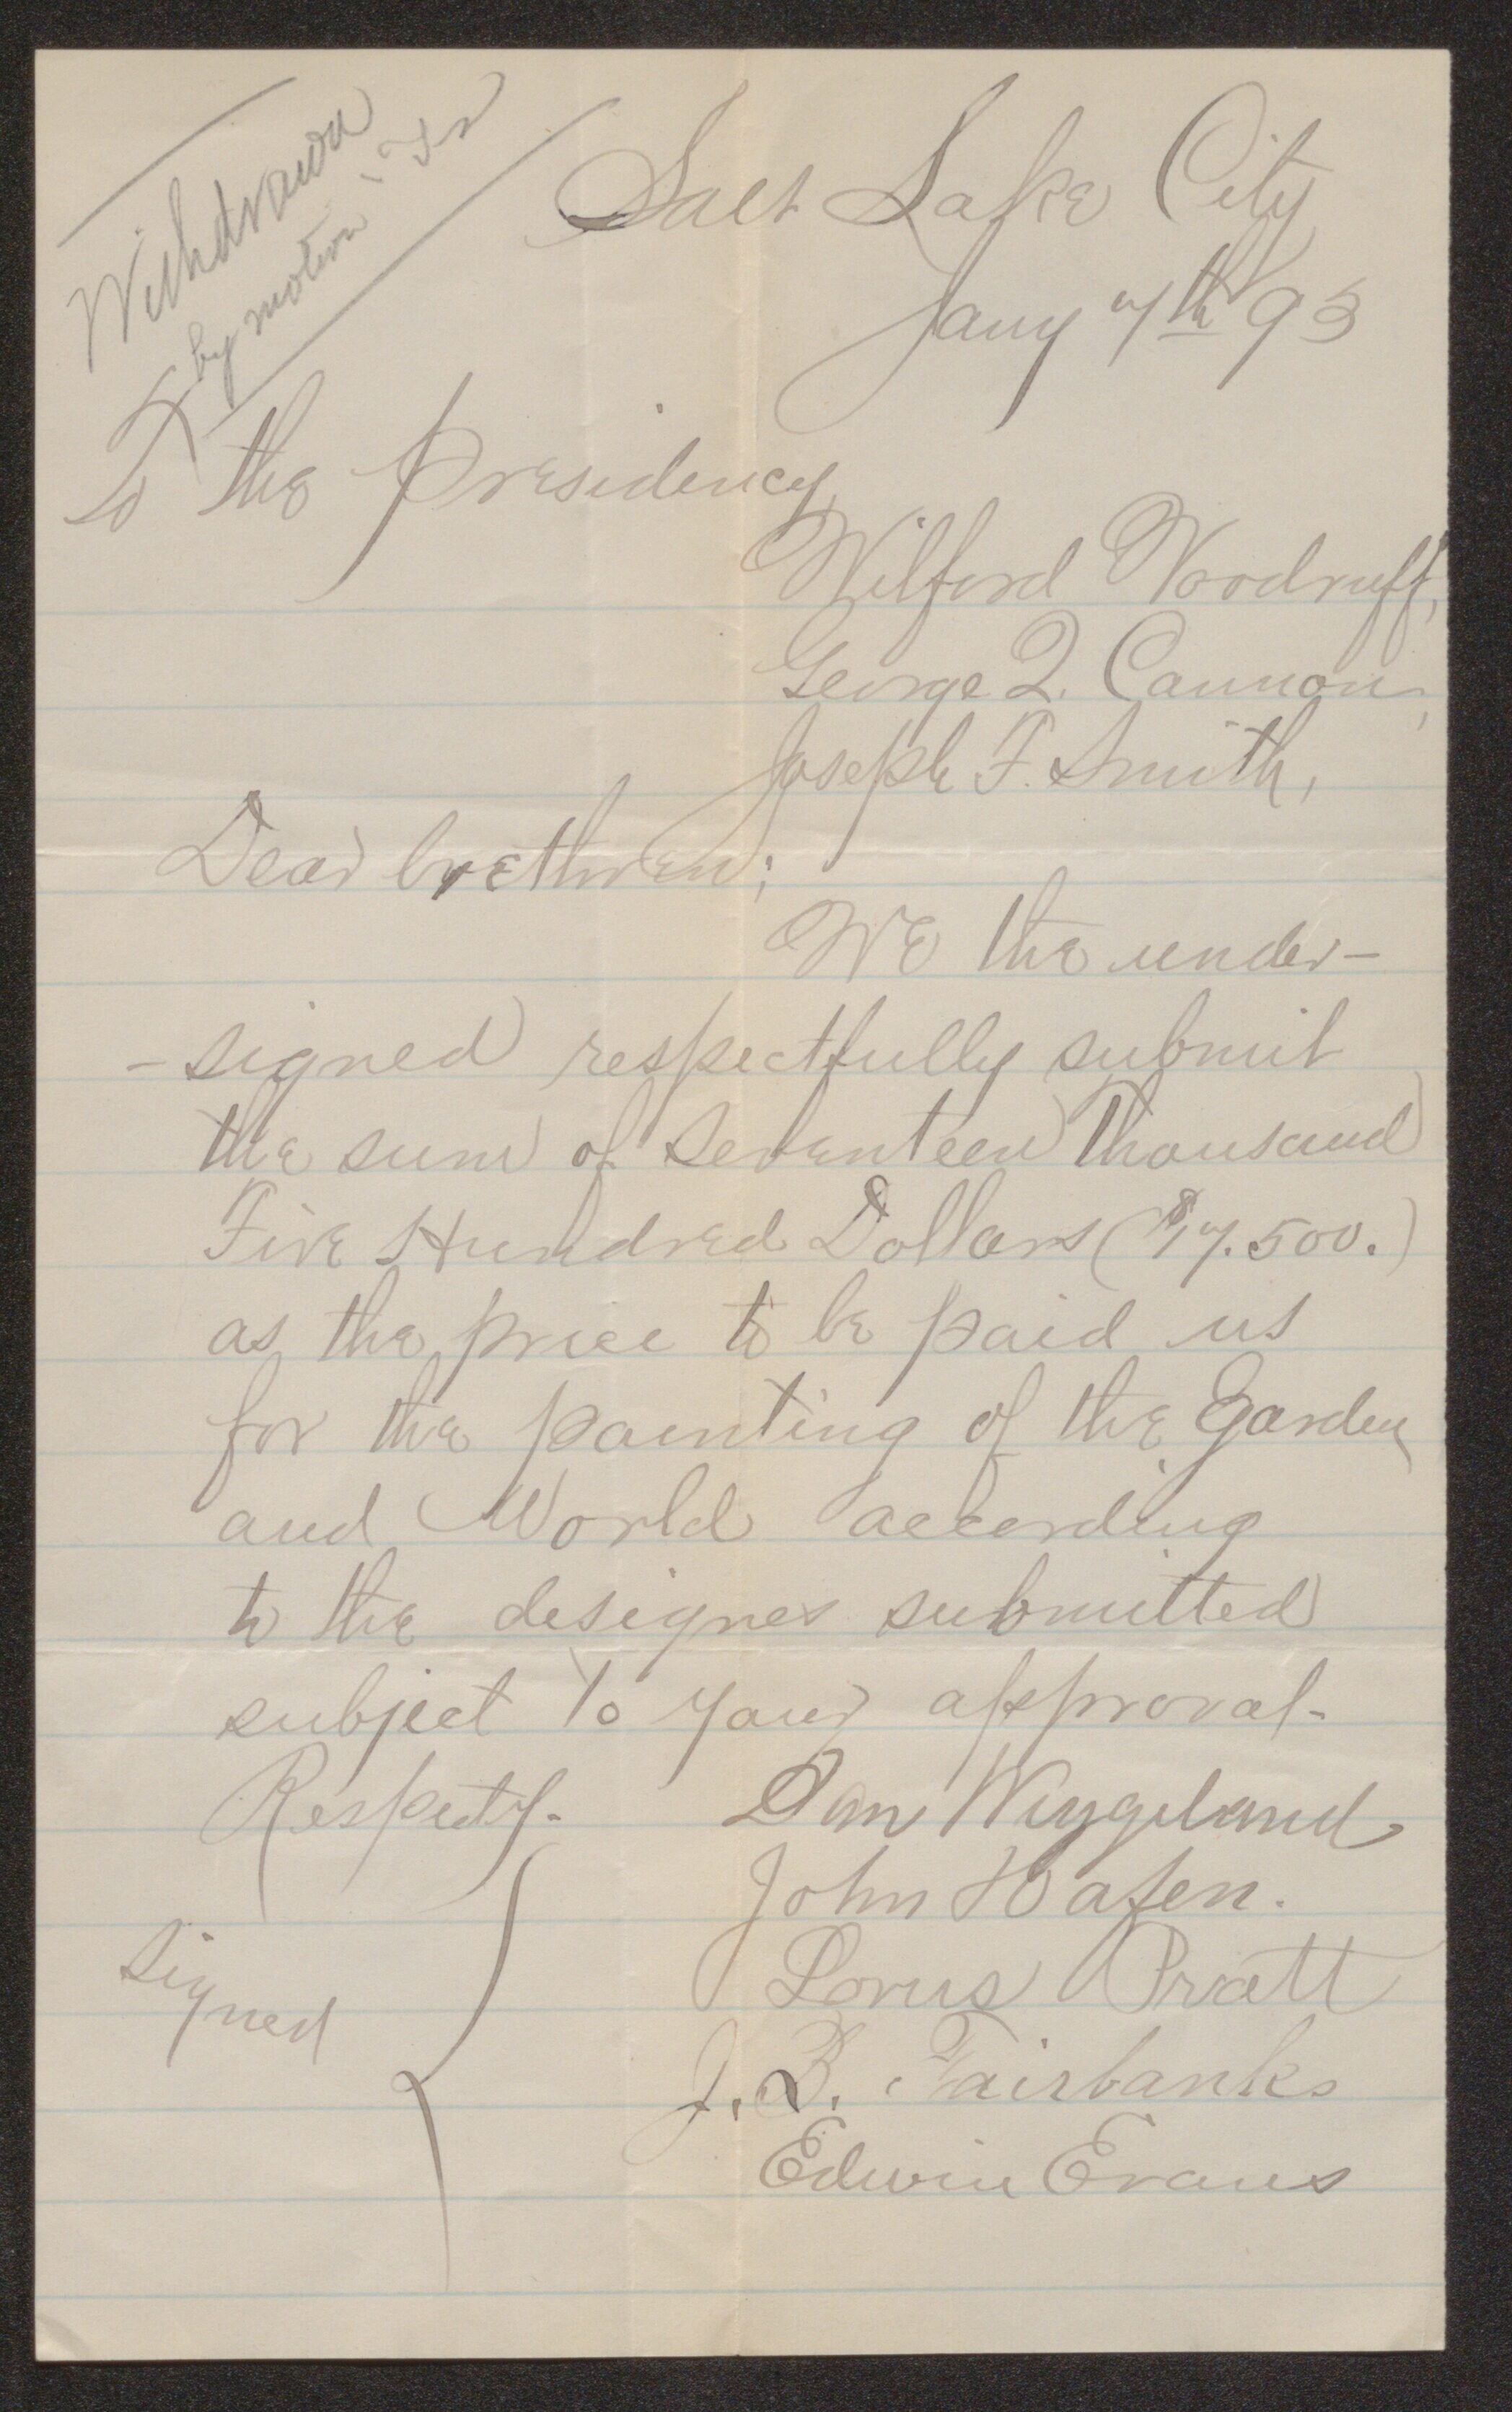 Withdrawn
by motion
Salt Lake City
Jany 7th 93
To the Presidency
Wilford Woodruff,
George Q. Cannon,
Joseph F. Smith,
Dear brethren;
We the under-
-signed respectfully submit
the sum of Seventeen Thousand
Five Hundred Dollars ($17.500.)
as the price to be paid us
for the painting of the Garden
and World according
to the designes submitted
subject to your approval-
Respectf.
Dan Weggeland
John Hafen.
Lorus Pratt
J. B. Fairbanks
Edwin Evans
Signed